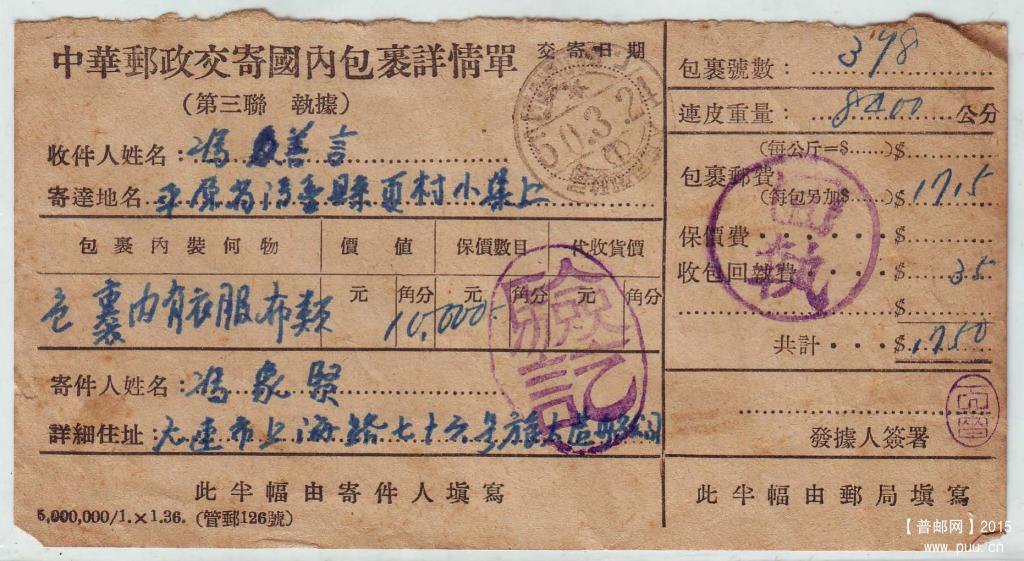 中華郵政交寄國內包裹詳情單
(第三聯 執據)
交寄日期
50.3.2
收件人姓名：馮善言
寄達地名 平原省清豐縣夏村小集上
包裹內裝何物 價值 保價數目 代收貨價
元 角分 元 角分 元 角分
包裹内有衣服布類 10,000
寄件人姓名：馮家賢
詳細住址：大連市上海路七十六号旅大造船公司
此半幅由寄件人塡寫
5,000,000/1.×1.36. (管郵126號)
包裹號數：378
連皮重量：8400 公分
(每公斤=$......)$
包裹郵費 (每包另加$......) $1715
保價費 $
收包回執費 $ 35
$
共計 $1750
發據人簽署
此半幅由郵局塡寫
回執
驗訖
【普邮网】2015
www.puu.cn